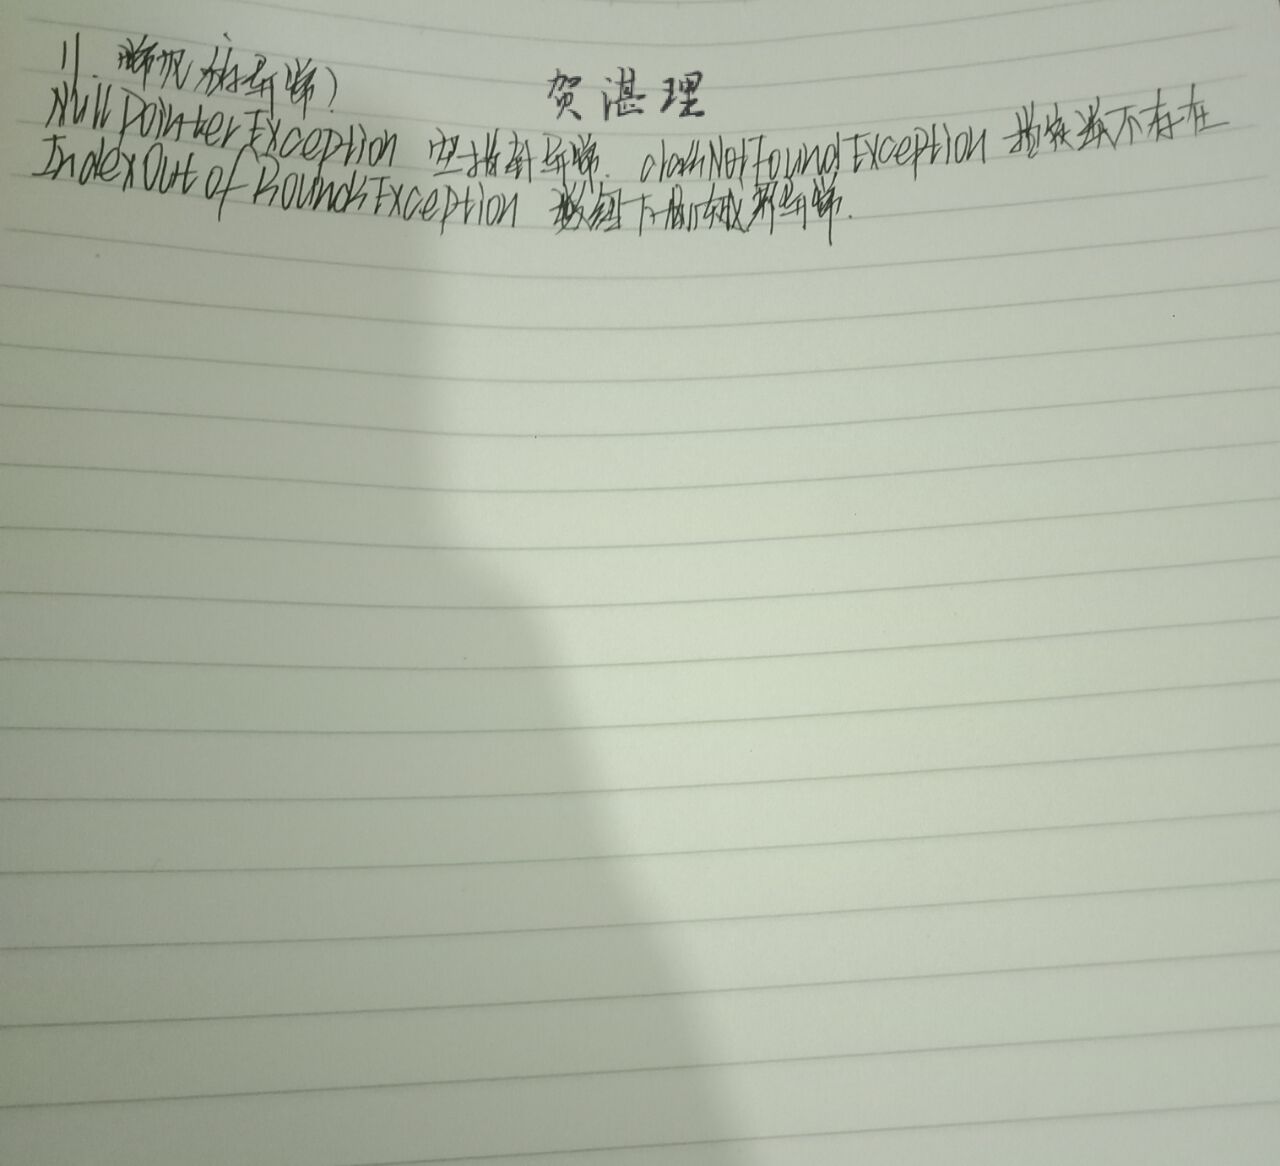 11. 常见的异常
贺湛理
NullPointerException 空指针异常. classNotFoundException 指定类不存在
IndexOutofBoundsException 数组下标越界异常.